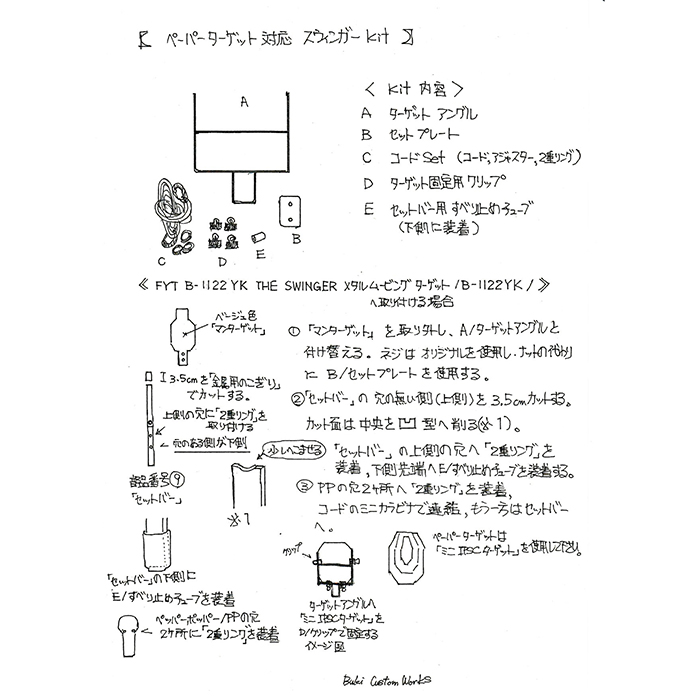 【 ペーパーターゲット対応 スウィンガー kit 】
A
< kit 内容 >
A ターゲット アングル
B セットプレート
C コードSet (コード,アジャスター,2重リング)
D ターゲット固定用クリップ
E セットバー用すべり止めチューブ
(下側に装着)
C
D
E
B
≪ FYT B-1122YK THE SWINGER メタルムービングターゲット/B-1122YK/≫
へ取り付ける場合
ベージュ色
「マンターゲット」
① 「マンターゲット」を取り外し、A/ターゲットアングルと
付け替える。ネジはオリジナルを使用し、ナットの代わり
に B/セットプレートを使用する。
3.5cmを「金属用のこぎり」
でカットする。
上側の穴に「2重リング」を
取り付ける
穴のある側が下側
②「セットバー」の 穴の無い側(上側)を 3.5cmカットする。
カット面は中央を凹型へ削る(※1)。
少しへこませる
「セットバー」の上側の穴へ「2重リング」を
装着,下側先端へE/すべり止めチューブを装着する。
部品番号⑨
「セットバー」
※1
③ PPの穴2ヶ所へ「2重リング」を装着,
コードのミニカラビナで連結,もう一方はセットバー
へ。
クリップ
ペーパーターゲットは
「ミニIPSCターゲット」を使用して下さい。
「セットバー」の下側に
E/すべり止めチューブを装着
ターゲットアングルへ
「ミニIPSCターゲット」を
D/クリップで固定する
イメージ図
ペッパーポッパー/PPの穴
2ヶ所に「2重リング」を装着
Buki Custom Works